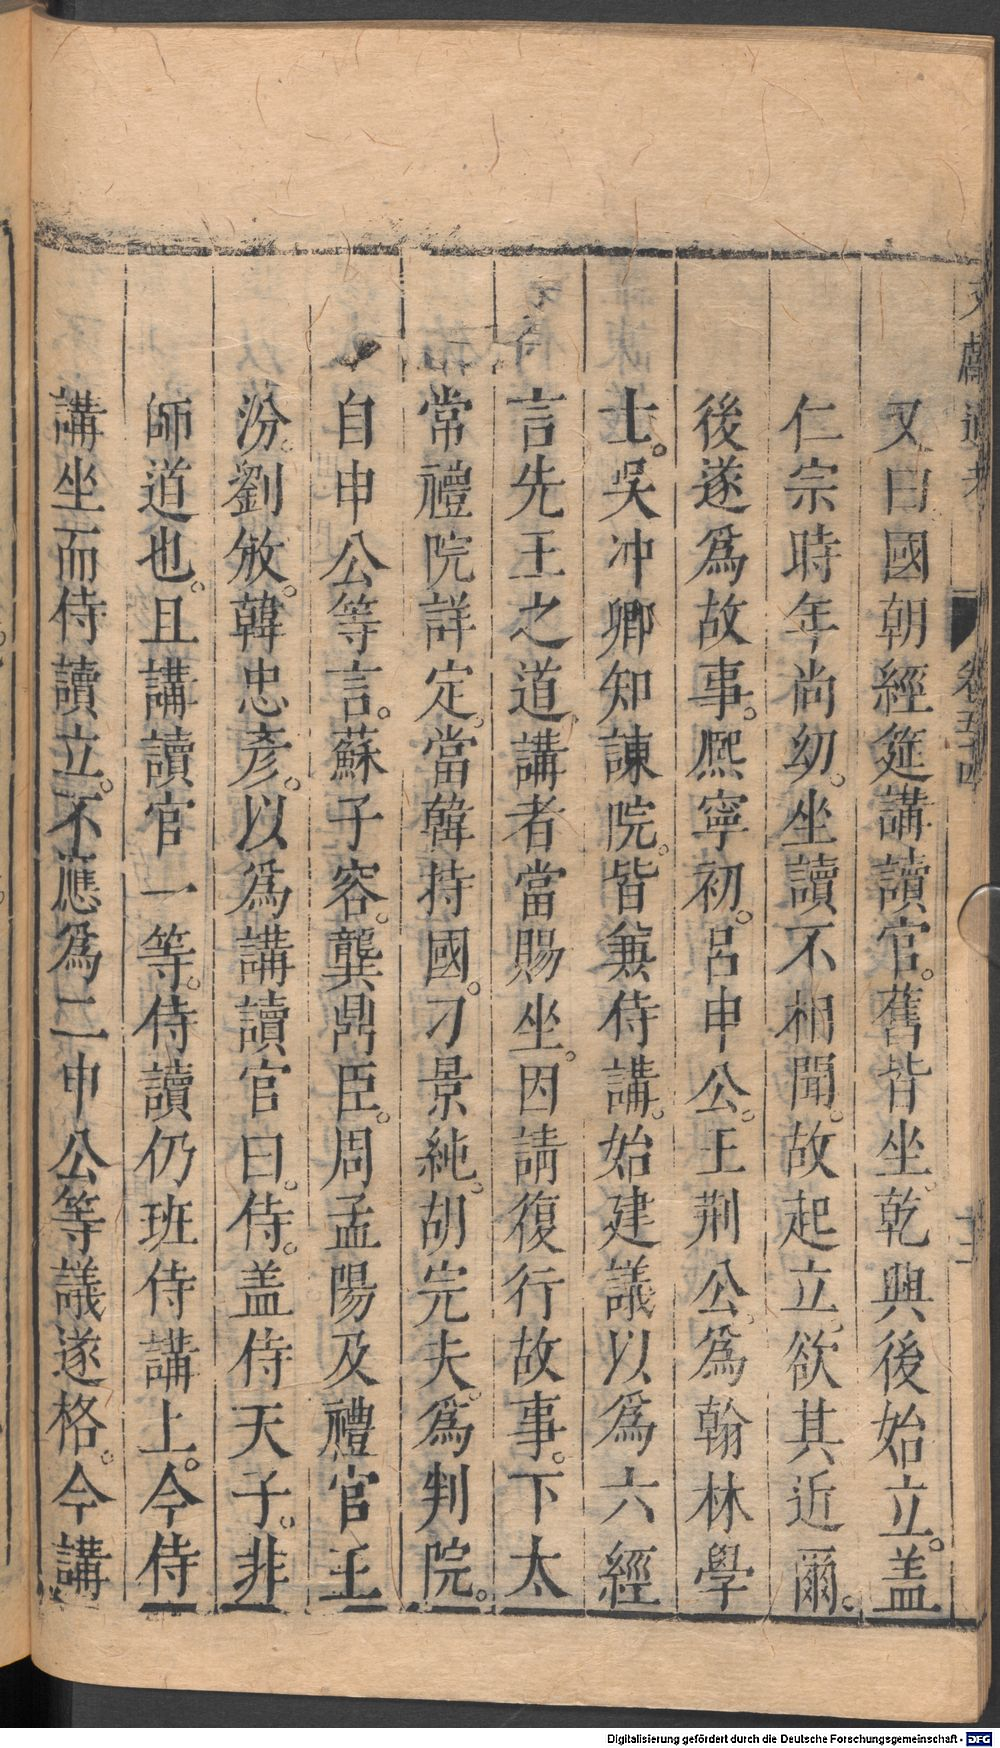 文獻通考 卷五十四 十二
又曰國朝經筵講讀官。舊皆坐。乾興後始立。盖
仁宗時年尚幼。坐讀不相聞。故起立。欲其近爾。
後遂爲故事。熈寧初。呂申公。王荆公。爲翰林學
士。吳冲卿知諫院。皆兼侍講。始建議以爲六經
言先王之道。講者當賜坐。因請復行故事。下太
常禮院詳定。當韓持國。刁景純。胡完夫。爲判院。
自申公等言。蘇子容。龔鼎臣。周孟陽及禮官王
汾。劉攽。韓忠彥。以爲講讀官曰。侍。盖侍天子。非
師道也。且講讀官一等。侍讀仍班侍講上。今侍
講坐而侍讀立。不應爲二申公等議遂格。今講
Digitalisierung gefördert durch die Deutsche Forschungsgemeinschaft - DFG